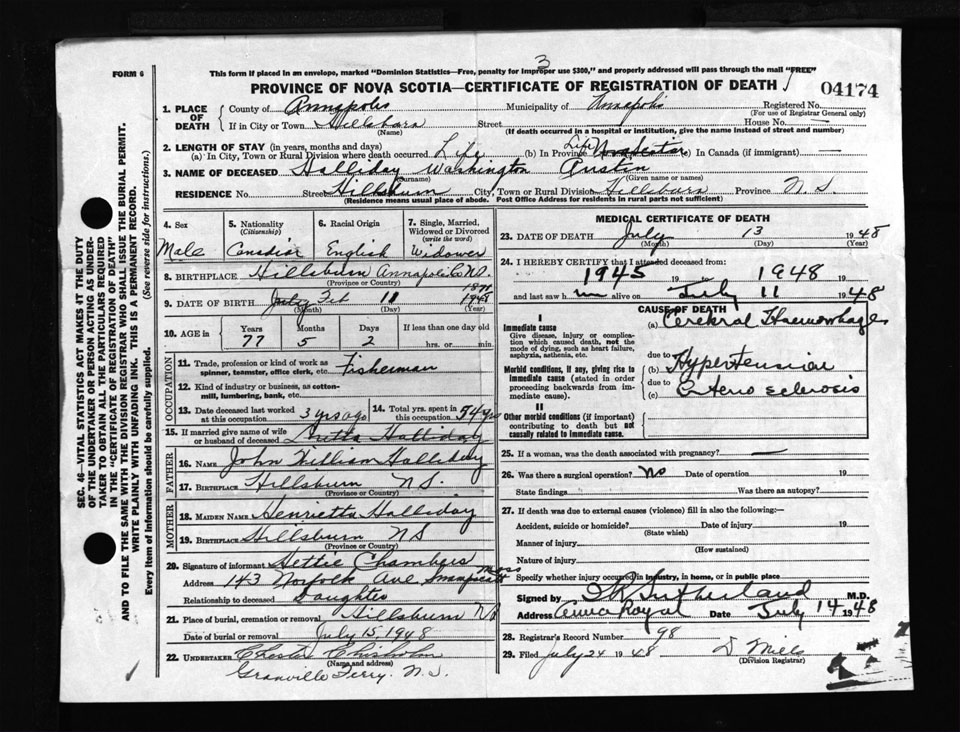 FORM 6
3
This form if placed in an envelope, marked "Dominion Statistics—Free, penalty for improper use $300," and properly addressed will pass through the mail "FREE"
PROVINCE OF NOVA SCOTIA—CERTIFICATE OF REGISTRATION OF DEATH
04174
1. PLACE OF DEATH
County of Annapolis Municipality of Annapolis Registered No.
(For use of Registrar General only)
If in City or Town Hillsburn Street House No. —
(Name) (If death occurred in a hospital or institution, give the name instead of street and number)
2. LENGTH OF STAY (in years, months and days)
(a) In City, Town or Rural Division where death occurred Life (b) In Province Life Nova Scotia (c) In Canada (if immigrant) —
3. NAME OF DECEASED Halliday Washington Austin
(Surname) (Given name or names)
RESIDENCE No. Street Hillsburn City, Town or Rural Division Hillsburn Province N.S.
(Residence means usual place of abode. Post Office Address for residents in rural parts not sufficient)
4. Sex Male
5. Nationality (Citizenship) Canadian
6. Racial Origin English
7. Single, Married, Widowed or Divorced (write the word) Widower
8. BIRTHPLACE Hillsburn Annapolis Co N.S.
(Province or Country)
9. DATE OF BIRTH July Feb 11 1871 1948
(Month) (Day) (Year)
10. AGE in Years Months Days If less than one day old
77 5 2 hrs. or min.
OCCUPATION
11. Trade, profession or kind of work as spinner, teamster, office clerk, etc. Fisherman
12. Kind of industry or business, as cotton-mill, lumbering, bank, etc.
13. Date deceased last worked at this occupation 3 yrs ago
14. Total yrs. spent in this occupation 54 yrs
15. If married give name of wife or husband of deceased Halliday
FATHER
16. NAME John William Halliday
17. BIRTHPLACE Hillsburn N.S.
(Province or Country)
MOTHER
18. MAIDEN NAME Henrietta Halliday
19. BIRTHPLACE Hillsburn NS
(Province or Country)
20. Signature of informant Hettie Chambers
Address 143 Norfolk Ave Swampscott Mass
Relationship to deceased Daughter
21. Place of burial, cremation or removal Hillsburn NS
Date of burial or removal July 15, 1948
22. UNDERTAKER Chester Chisholm
(Name and address)
Granville Ferry. N.S.
MEDICAL CERTIFICATE OF DEATH
23. DATE OF DEATH July 13 1948
(Month) (Day) (Year)
24. I HEREBY CERTIFY that I attended deceased from:
1945 19 to 1948 19
and last saw h im alive on July 11 1948
CAUSE OF DEATH
I
Immediate cause
Give disease, injury or complication which caused death, not the mode of dying, such as heart failure, asphyxia, asthenia, etc.
(a) Cerebral Haemorrhage
due to
Morbid conditions, if any, giving rise to immediate cause (stated in order proceeding backwards from immediate cause).
(b) Hypertension
due to
(c) sclerosis
II
Other morbid conditions (if important) contributing to death but not causally related to immediate cause.
25. If a woman, was the death associated with pregnancy? —
26. Was there a surgical operation? No Date of operation 19
State findings Was there an autopsy?
27. If death was due to external causes (violence) fill in also the following:—
Accident, suicide or homicide? Date of injury 19
(State which)
Manner of injury
(How sustained)
Nature of injury
Specify whether injury occurred in industry, in home, or in public place
Signed by Sutherland M.D.
Address Anna Royal Date July 14 1948
28. Registrar's Record Number 98
29. Filed July 24 1948 D Mills
(Division Registrar)
SEC. 46—VITAL STATISTICS ACT MAKES IT THE DUTY
OF THE UNDERTAKER OR PERSON ACTING AS UNDER-
TAKER TO OBTAIN ALL THE PARTICULARS REQUIRED
IN THE "CERTIFICATE OF REGISTRATION OF DEATH"
AND TO FILE THE SAME WITH THE DIVISION REGISTRAR WHO SHALL ISSUE THE BURIAL PERMIT.
WRITE PLAINLY WITH UNFADING INK. THIS IS A PERMANENT RECORD.
Every item of information should be carefully supplied. (See reverse side for instructions.)